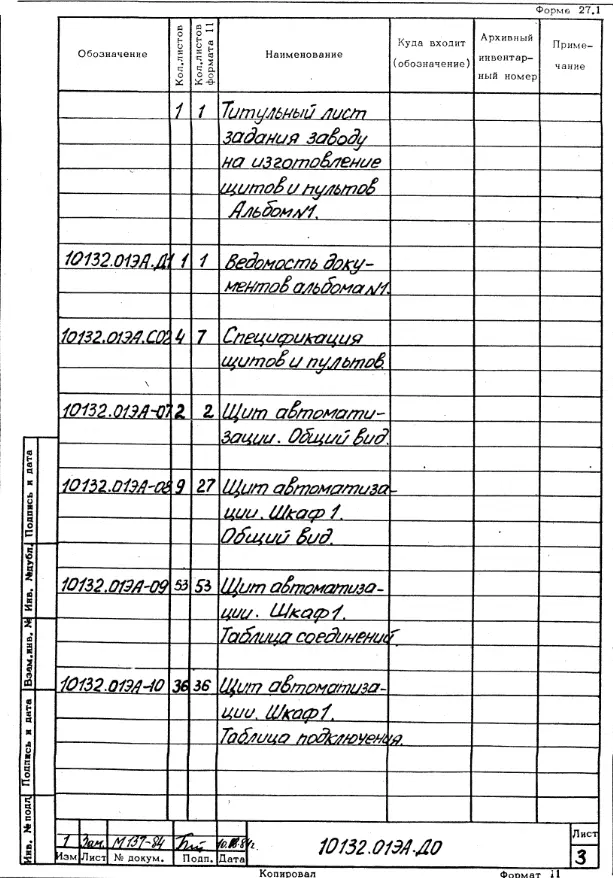 Форма 27.1
Обозначение
Кол.листов
Кол.листов формата 11
Наименование
Куда входит
(обозначение)
Архивный
инвентар-
ный номер
Приме-
чание
1 1 Титульный лист
задания заводу
на изготовление
щитов и пультов
Альбом №1.
10132.01ЭА.Д1 1 1 Ведомость доку-
ментов альбома №1.
10132.01ЭА.С02 4 7 Спецификация
щитов и пультов.
10132.01ЭА-07 2 2 Щит автомати-
зации. Общий вид.
10132.01ЭА-08 9 27 Щит автоматиза-
ции. Шкаф 1.
Общий вид.
10132.01ЭА-09 53 53 Щит автоматиза-
ции. Шкаф 1.
Таблица соединений.
10132.01ЭА-10 36 36 Щит автоматиза-
ции. Шкаф 1.
Таблица подключения.
Подпись и дата
Инв. №дубл.
Взам.инв. №
Подпись и дата
Инв. №подл
1 Зам. М137-84
Изм Лист № докум. Подп. Дата
10132.01ЭА.Д0
Лист
3
Копировал
Формат 11